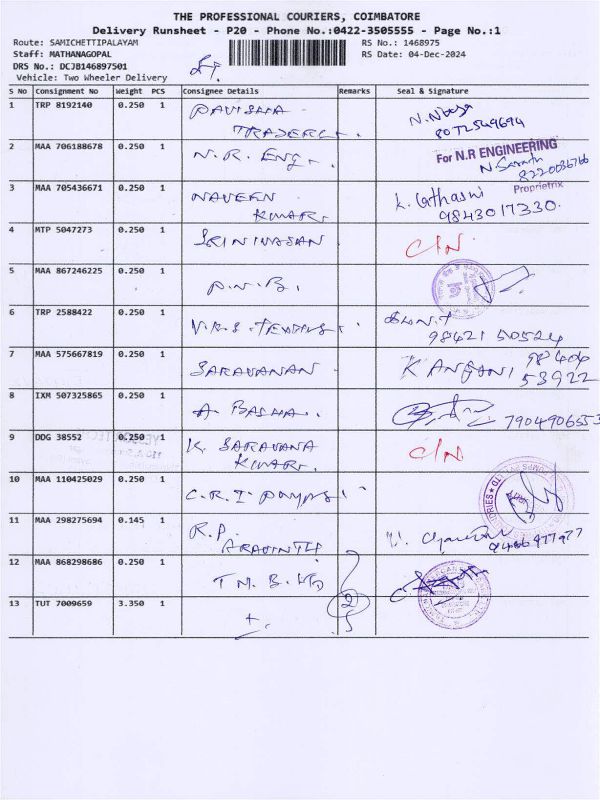 THE PROFESSIONAL COURIERS, COIMBATORE
Delivery Runsheet - P20 - Phone No.:0422-3505555 - Page No.:1
Route: SAMICHETTIPALAYAM
RS No.: 1468975
Staff: MATHANAGOPAL
RS Date: 04-Dec-2024
DRS No.: DCJB146897501
Vehicle: Two Wheeler Delivery
S No Consignment No Weight PCS Consignee Details Remarks Seal & Signature
1 TRP 8192140 0.250 1 PAVISHNA
TRADERS. N.
8072549694
2 MAA 706188678 0.250 1 N.R. ENG. For N.R ENGINEERING
N.
8220036766
Proprietrix
3 MAA 705436671 0.250 1 NAVEEN
KUMAR. K.
9843017330.
4 MTP 5047273 0.250 1 SRINIVASAN C/N
5 MAA 867246225 0.250 1 P.N.B.
6 TRP 2588422 0.250 1 V.R.S. TEXTILES
98421 50524
7 MAA 575667819 0.250 1 SARAVANAN K ANGANI 98404
53922
8 IXM 507325865 0.250 1 A BASHA. 7904906553
9 DDG 38552 0.250 1 K. SARAVANA
KUMAR. C/N
10 MAA 110425029 0.250 1 C.R.I PUMPS
11 MAA 298275694 0.145 1 R.P
ARAVINTH
9486977977
12 MAA 868298686 0.250 1 T M. B. LTD
13 TUT 7009659 3.350 1 2